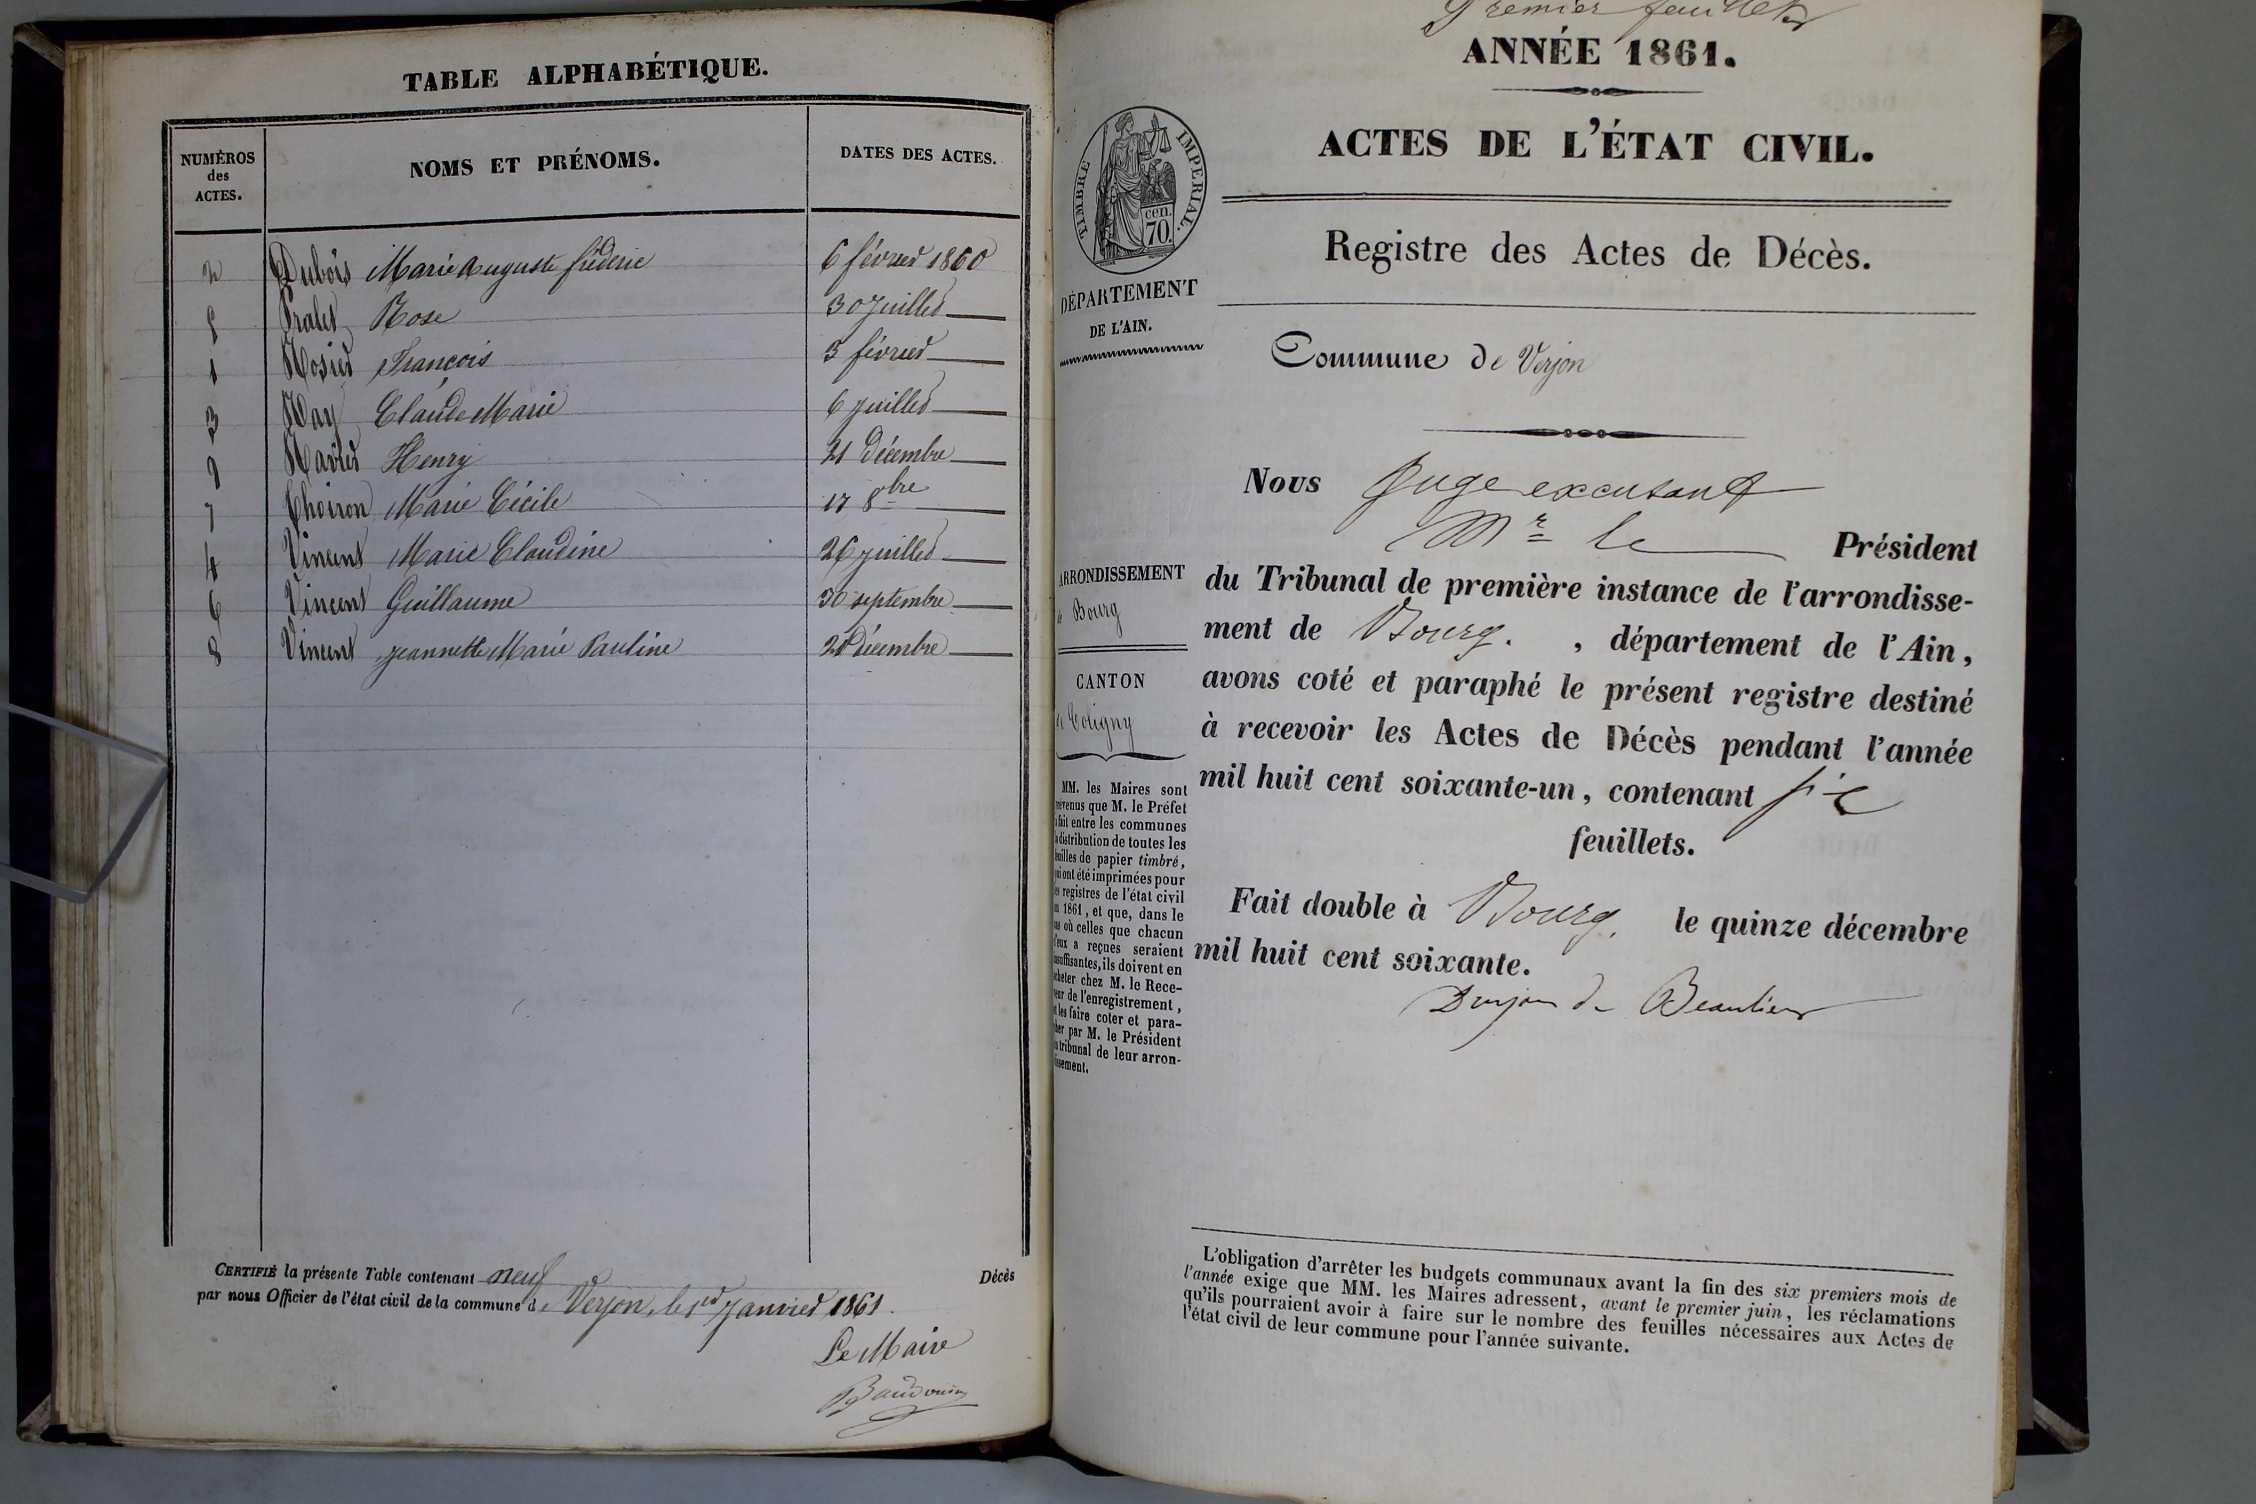 TABLE ALPHABÉTIQUE.
NUMÉROS des ACTES. NOMS ET PRÉNOMS. DATES DES ACTES.
2 Dubois Marie Auguste frédéric 6 février 1860
5 Pralet Rose 30 juillet
1 Rosier François 3 février
3 Ray Claude Marie 6 juillet
9 Ravier Henry 21 Décembre
7 Thoiron Marie Cécile 17 8bre
4 Vincent Marie Claudine 26 juillet
6 Vincent Guillaume 30 septembre
8 Vincent Jeannette Marie Pauline Décembre
CERTIFIÉ la présente Table contenant neuf Décès
par nous Officier de l'état civil de la commune de Verjon, le 1er janvier 1861.
Le Maire
Premier feuillet
ANNÉE 1861.
ACTES DE L'ÉTAT CIVIL.
TIMBRE IMPERIAL.
cen.
70.
Registre des Actes de Décès.
DÉPARTEMENT
DE L'AIN.
Commune de Verjon
Nous Juge
Mr le Président
du Tribunal de première instance de l'arrondisse-
ment de Bourg. , département de l'Ain,
avons coté et paraphé le présent registre destiné
à recevoir les Actes de Décès pendant l'année
mil huit cent soixante-un, contenant
feuillets.
Fait double à Bourg. le quinze décembre
mil huit cent soixante.
de Beaulieu
ARRONDISSEMENT
de Bourg
CANTON
de Coligny
MM. les Maires sont
prévenus que M. le Préfet
a fait entre les communes
la distribution de toutes les
feuilles de papier timbré,
qui ont été imprimées pour
les registres de l'état civil
en 1861, et que, dans le
cas où celles que chacun
d'eux a reçues seraient
insuffisantes, ils doivent en
acheter chez M. le Rece-
veur de l'enregistrement,
et les faire coter et para-
pher par M. le Président
du tribunal de leur arron-
dissement.
L'obligation d'arrêter les budgets communaux avant la fin des six premiers mois de
l'année exige que MM. les Maires adressent, avant le premier juin, les réclamations
qu'ils pourraient avoir à faire sur le nombre des feuilles nécessaires aux Actes de
l'état civil de leur commune pour l'année suivante.